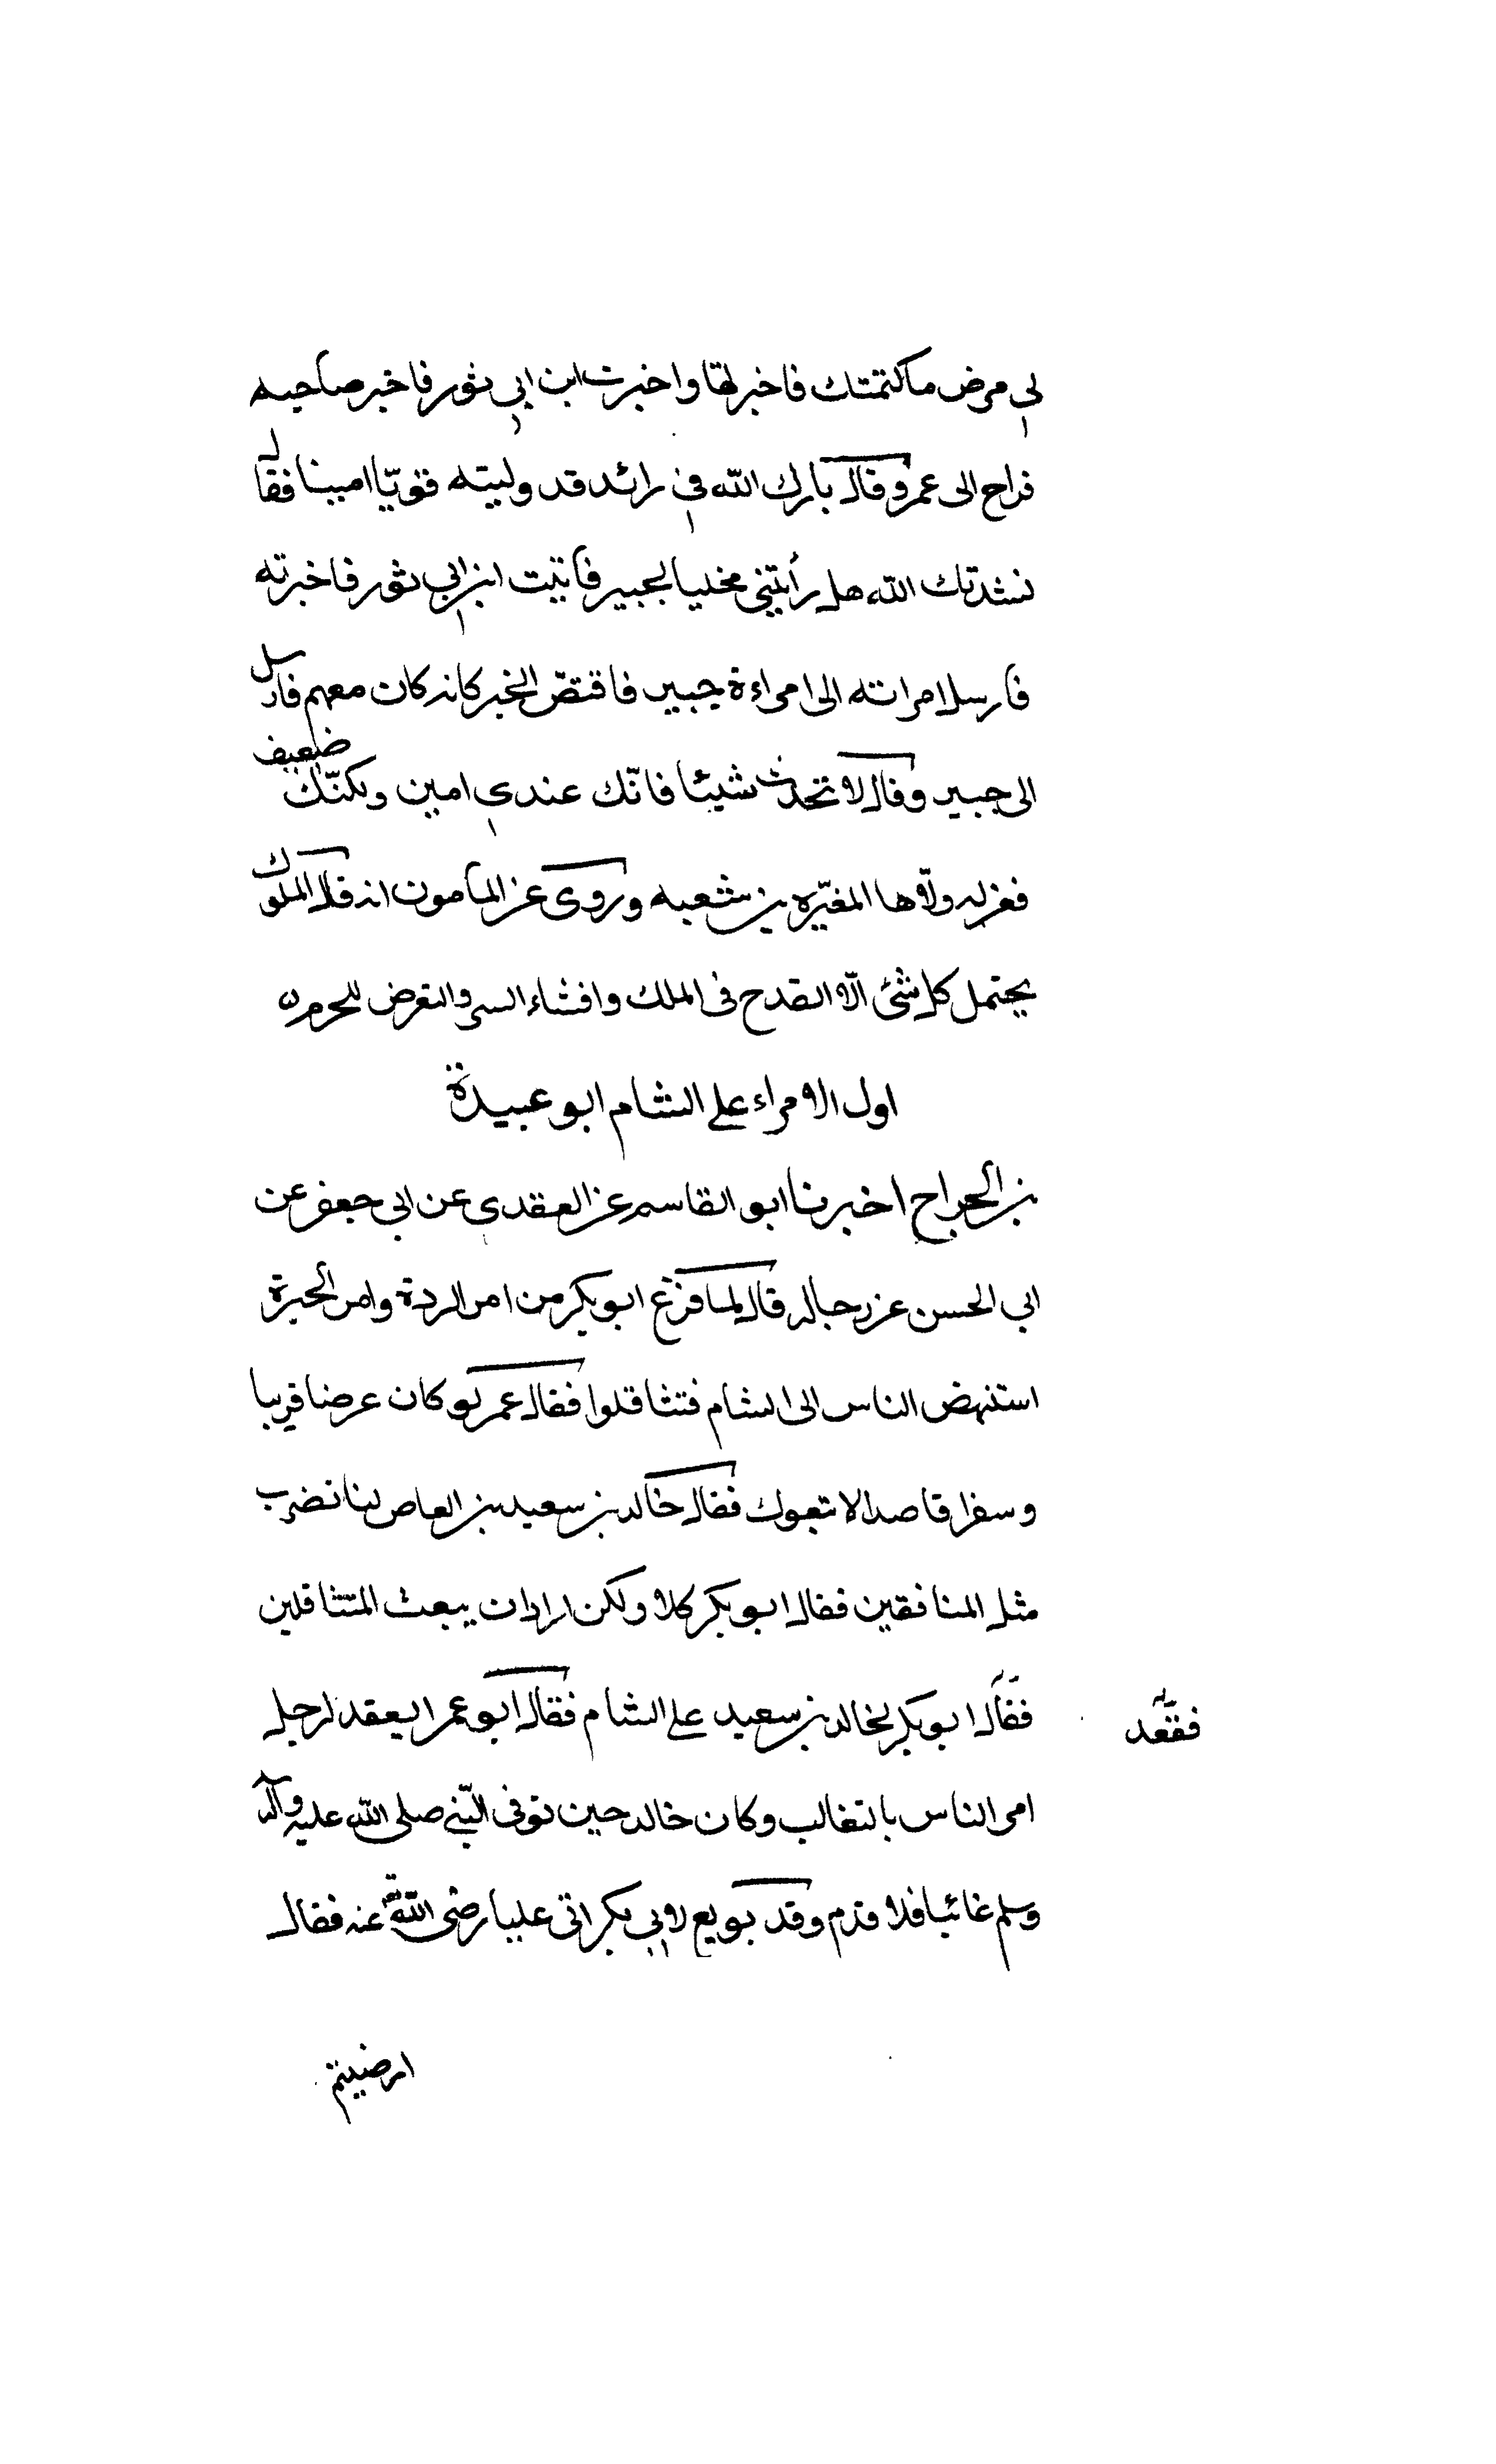 لى مرض ماكتمتك فاخبرلها واخبرت ابن ابى ثور فاخبر صاحبه
فراح الى عمر وقال بارك الله فى رائد قد وليته قويّا امينا فقال
نشدتك الله هل رأيتنى مخليا لجبير فاتيت ابن ابى ثور فاخبرته
فارسل امراته الى امراءة جبير فاقتصّ الخبر كانه كان معهم فارسل
الى جبير وقال لا تحدث شيئا فانّك عندى امين ولكنّك ضعيف
فعزله ولّاها المغيّره بن شعبه وروى عن المأمون انه قال الملوك
يحتمل كل شئ الّا القدح فى الملك وافشاء السر والتعرض للحرم ه
اول الامراء على الشام ابو عبيدة
بن الجراح اخبرنا ابو القاسم عن العقدى عن ابى جعفر عن
ابى الحسن عن رجاله قال لما فرغ ابو بكر من امر الردة وامر الحيرة
استنهض الناس الى الشام فتثاقلوا فقال عمر لو كان عرضا قريبا
وسفرا قاصدا لاتبعوك فقال خالد بن سعيد بن العاص لنا نضرب
مثل المنافقين فقال ابو بكر كلا ولكن اراد ان يبعث المتثاقلين
فقال ابو بكر لخالد بن سعيد على الشام فقال ابو عمر ايعقد لرجل
فقعد
امر الناس بالتغالب وكان خالد حين توفى النّبى صلى الله عليه وآله
وسلم غائبا فلا قدم وقد بويع لابى بكر اتى عليا رضى الله عنه فقال
ارضيتم